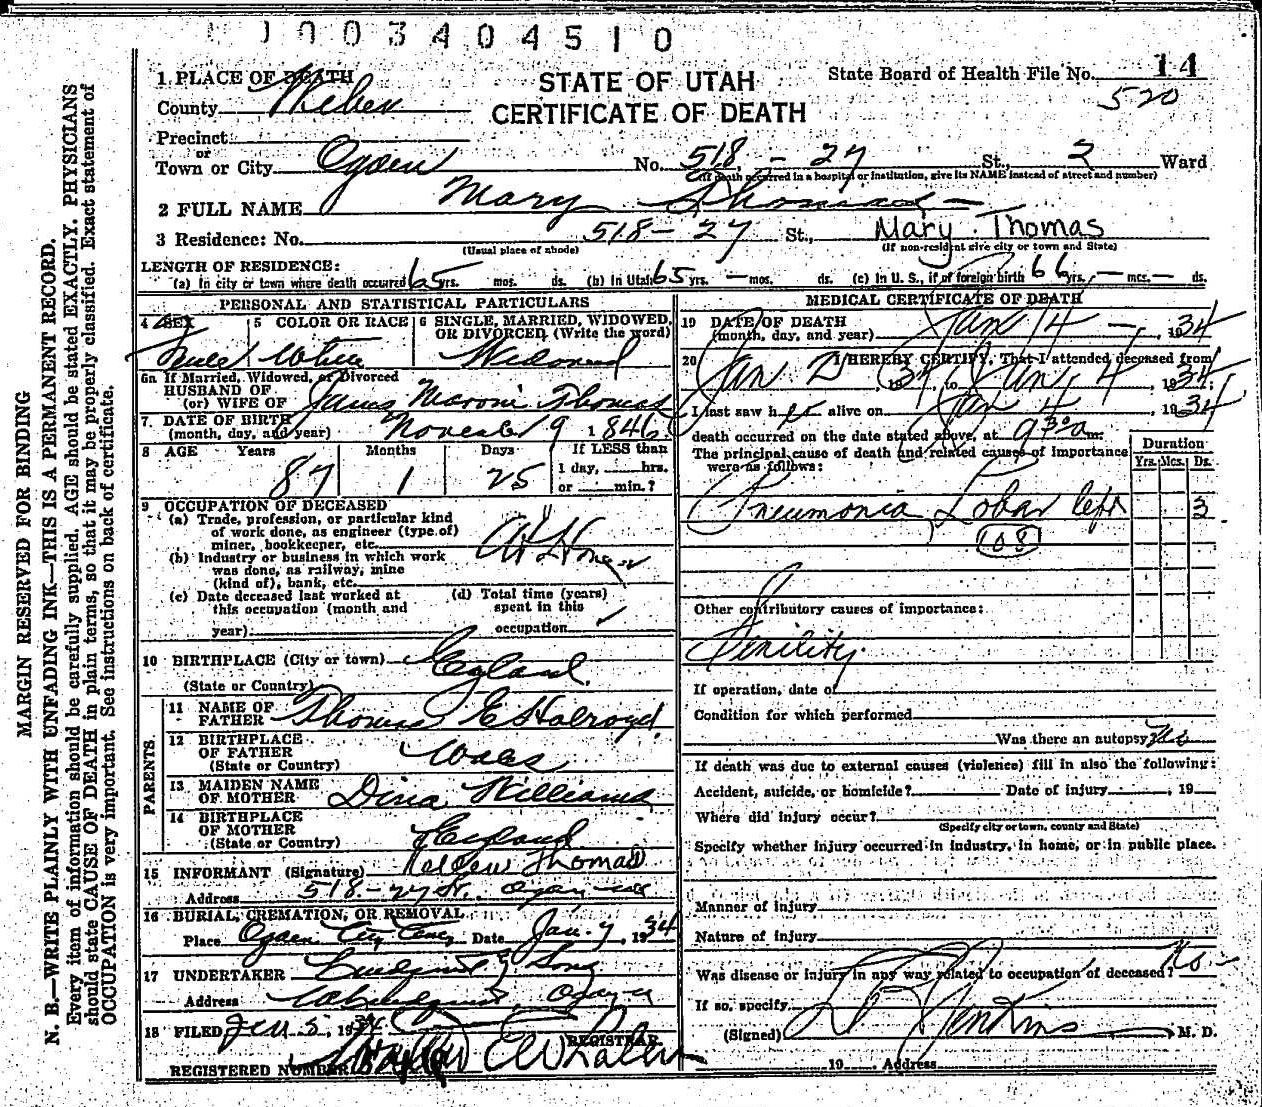 1003404510
1 PLACE OF DEATH
STATE OF UTAH
CERTIFICATE OF DEATH
State Board of Health File No. 14
520
County Weber
Precinct
or
Town or City Ogden No. 518 - 27 St., 2 Ward
(If death occurred in a hospital or institution, give its NAME instead of street and number)
2 FULL NAME Mary Thomas
3 Residence: No. 518 - 27 St., Mary Thomas
(Usual place of abode) (If non-resident give city or town and State)
LENGTH OF RESIDENCE:
(a) In city or town where death occurred 65 yrs. mos. ds. (b) In Utah 65 yrs. - mos. ds. (c) In U. S., if of foreign birth 66 yrs. - mos. - ds.
PERSONAL AND STATISTICAL PARTICULARS
4 SEX
5 COLOR OR RACE
White
6 SINGLE, MARRIED, WIDOWED, OR DIVORCED, (Write the word)
Widowed
6a If Married, Widowed, or Divorced
HUSBAND OF
(or) WIFE OF James Moroni Thomas
7. DATE OF BIRTH
(month, day, and year) November 9 1846
8 AGE Years Months Days If LESS than
1 day, hrs.
87 1 25 or min.?
9 OCCUPATION OF DECEASED
(a) Trade, profession, or particular kind
of work done, as engineer (type of)
miner, bookkeeper, etc.
At Home
(b) Industry or business in which work
was done, as railway, mine
(kind of), bank, etc.
(c) Date deceased last worked at
this occupation (month and
year)
(d) Total time (years)
spent in this
occupation ✓
10 BIRTHPLACE (City or town) England
(State or Country)
PARENTS.
11 NAME OF
FATHER Thomas E Holroyd.
12 BIRTHPLACE
OF FATHER Wales
(State or Country)
13 MAIDEN NAME
OF MOTHER Dina Williams
14 BIRTHPLACE
OF MOTHER England
(State or Country)
15 INFORMANT (Signature) Thomas
Address 518 - 27 St. Ogden
16 BURIAL, CREMATION, OR REMOVAL
Place Ogden City Date Jan. 7, 1934
17 UNDERTAKER Lindquist & Sons
Address Ogden
18 FILED Jan 5 1934
REGISTRAR.
REGISTERED NUMBER
MEDICAL CERTIFICATE OF DEATH
19 DATE OF DEATH
(month, day, and year) Jan 4 - , 1934
20 I HEREBY CERTIFY, That I attended deceased from
Jan 2, 1934, to Jan, 4, 1934;
I last saw her alive on Jan 4, 1934
death occurred on the date stated above, at 9 30 a m.
The principal cause of death and related causes of importance
were as follows:
Duration
Yrs. Mos. Ds.
Pneumonia, Lobar left 3
108
Other contributory causes of importance:
Senility.
If operation, date of
Condition for which performed
Was there an autopsy? No
If death was due to external causes (violence) fill in also the following:
Accident, suicide, or homicide? Date of injury , 19
Where did injury occur?
(Specify city or town, county and State)
Specify whether injury occurred in industry, in home, or in public place.
Manner of injury
Nature of injury
Was disease or injury in any way related to occupation of deceased? No.
If so, specify
(Signed) Jenkins M. D.
19 Address
MARGIN RESERVED FOR BINDING
N. B.—WRITE PLAINLY WITH UNFADING INK—THIS IS A PERMANENT RECORD.
Every item of information should be carefully supplied. AGE should be stated EXACTLY. PHYSICIANS
should state CAUSE OF DEATH in plain terms, so that it may be properly classified. Exact statement of
OCCUPATION is very important. See instructions on back of certificate.